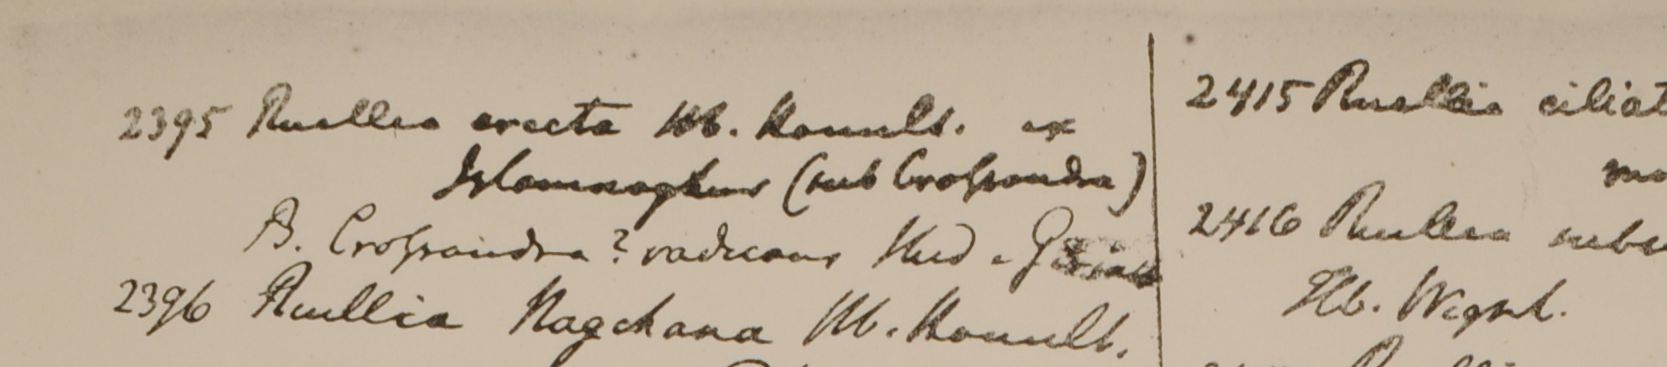 2395 Ruellia erecta Hb. Hamilt. ex
(sub Crossandra)
B. Crossandra? radicans Hb.
2396 Ruellia Nagchana Hb. Hamilt.
2415 Ruellia ciliat
2416 Ruellia subs
Hb. Wight.